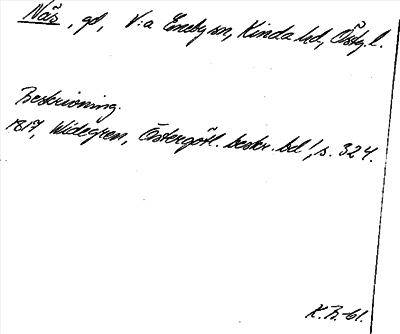 Näs, gd, V:a Eneby sn, Kinda hd, Östg.l.
Beskrivning.
1817, Widegren, Östergötl. beskr. bd 1, s. 324.
K.B-bl.